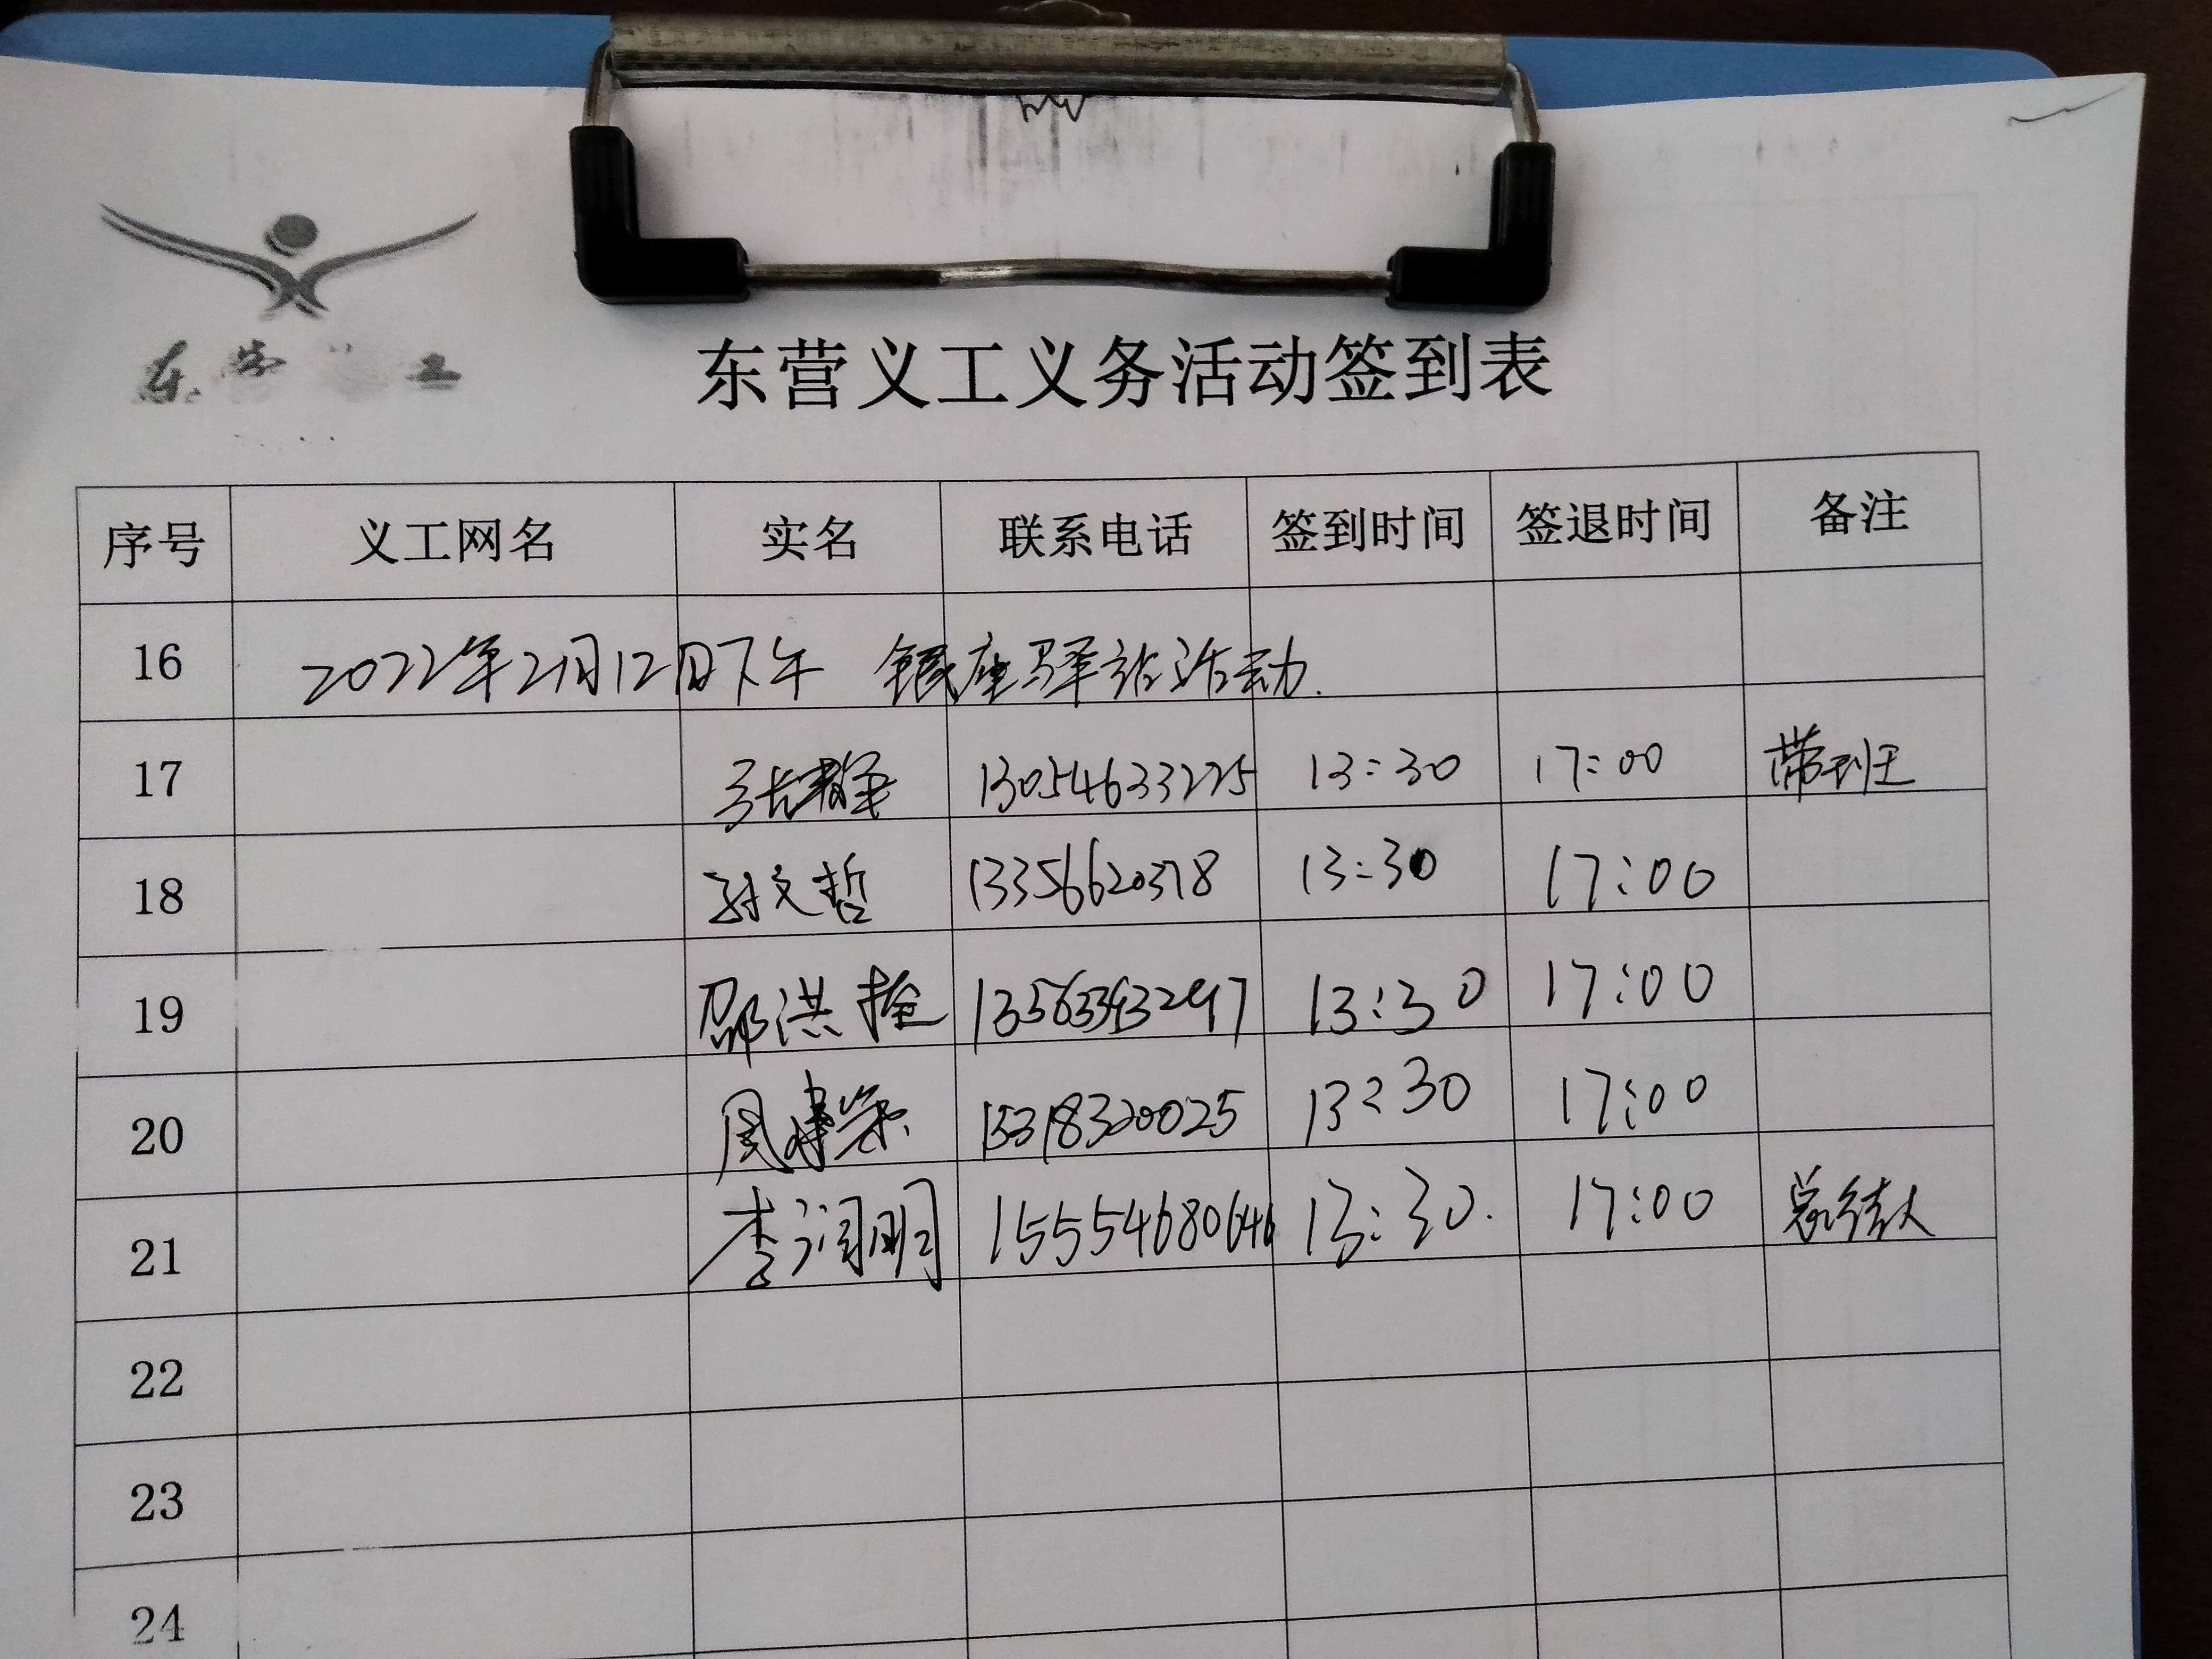 东营义工义务活动签到表
序号 义工网名 实名 联系电话 签到时间 签退时间 备注
16 2022年2月12日下午 银座驿站活动.
17 张静 13054633225 13:30 17:00 带班
18 孙文哲 13356620378 13:30 17:00
19 邵洪拴 13563393297 13:30 17:00
20 周建荣 15318320025 13:30 17:00
21 李润明 15554680646 13:30. 17:00 总结人
22
23
24